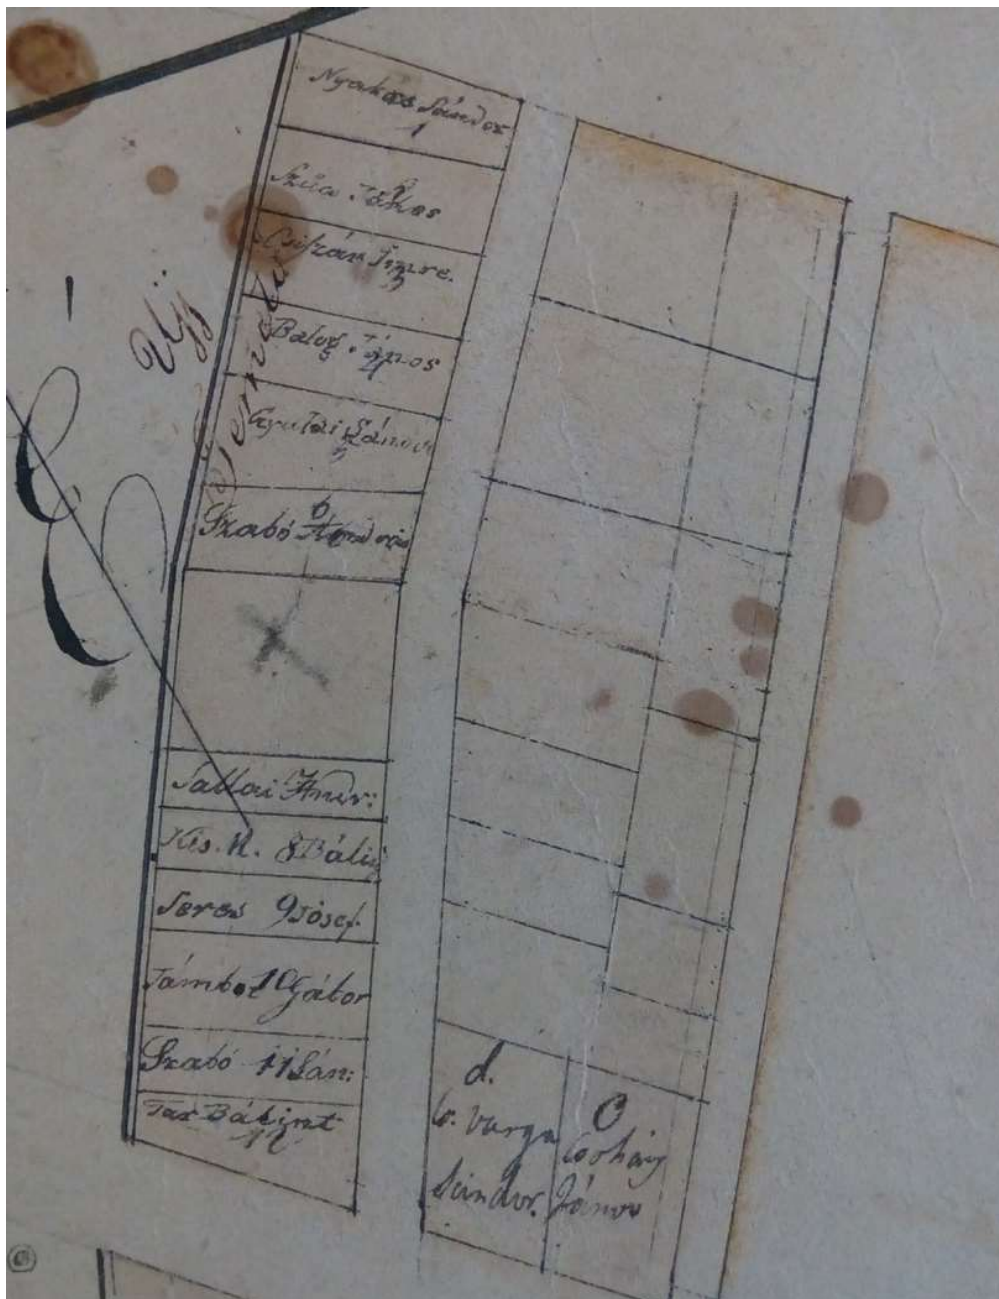 Nyakas Sándor
1
Szűcs Jákos
2
Csiszár Imre.
3
Balog János
4
Gyulai Sándor
5
6
Szabó András
Új
Temető
Sallai Andr:
Kis. M. 8 Bálin
Seres 9 Jósef.
Jámbor 10 Gábor
Szabó 11 Sán:
Tar Bálint
12
d.
Cs. Varga
Sándor.
C
Csohány
János